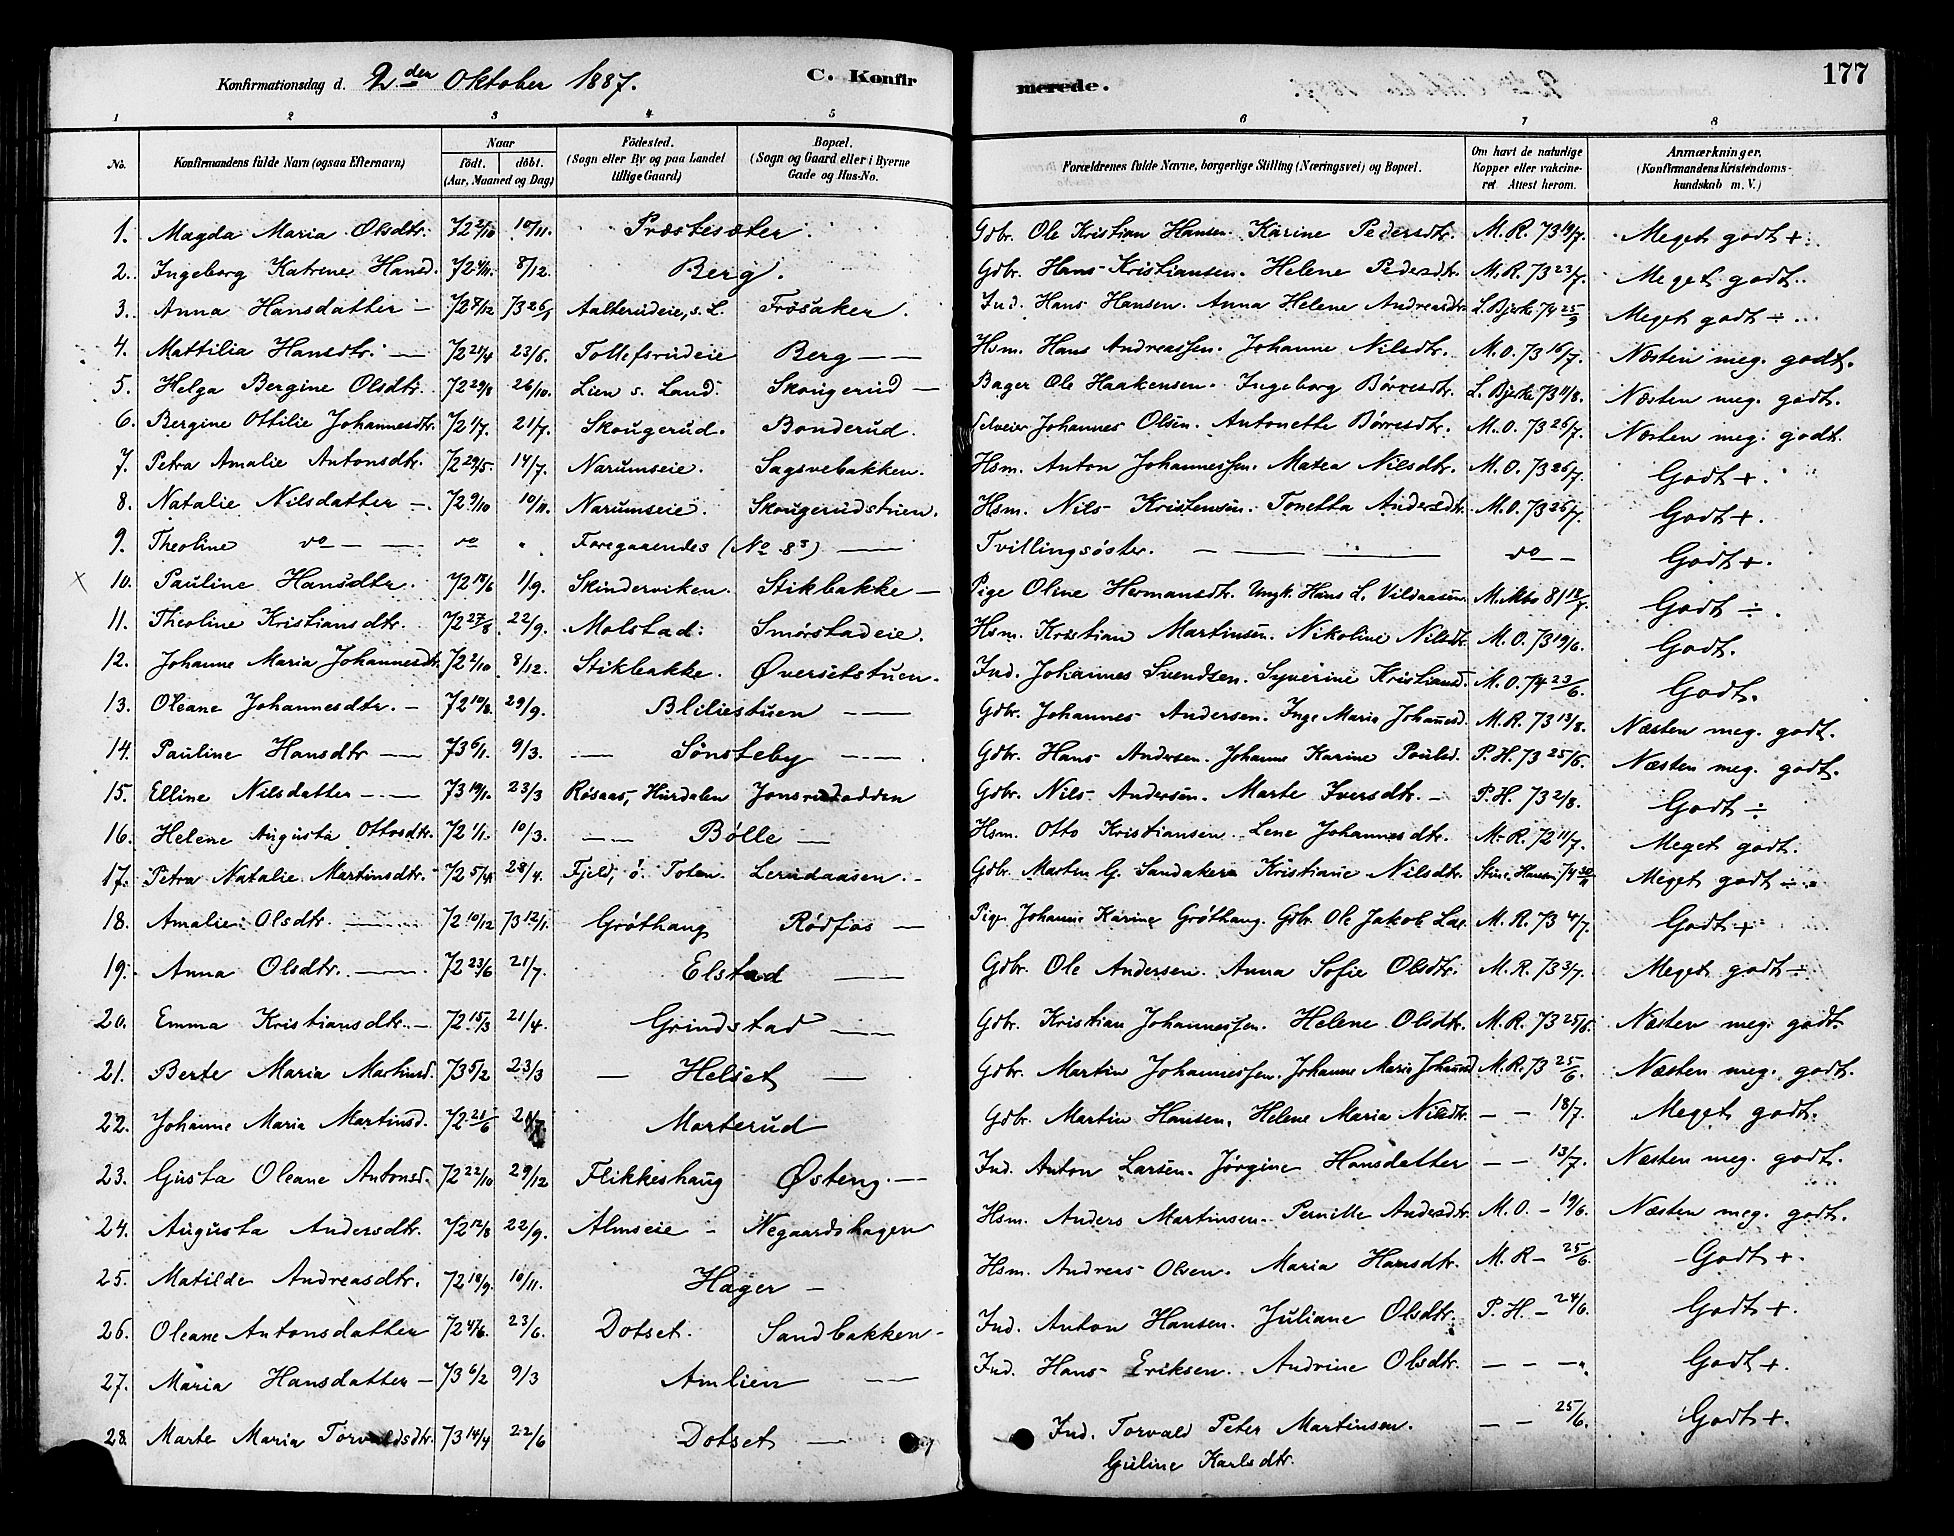 Konfirmationsdag d. 2den Oktober 1887. C. Konfirmerede. 177
1 2 3 4 5 6 7 8
No. Konfirmandens fulde Navn (ogsaa Efternavn) Naar födt. döbt. (Aar, Maaned og Dag) Födested. (Sogn eller By og paa Landet tillige Gaard) Bopæl. (Sogn og Gaard eller i Byerne Gade og Hus-No. Forældrenes fulde Navne, borgerlige Stilling (Næringsvei) og Bopæl. Om havt de naturlige Kopper eller vakcineret. Attest herom. Anmærkninger. (Konfirmandens Kristendomskundskab m. V.)
1. Magda Maria Olsdtr. 72 2/10 10/11. Præstesæter. Gdbr. Ole Kristian Hansen. Karine Pedersdtr. M.R. 73 19/7. Meget godt +.
2. Ingeborg Katrene Hansd. 72 4/11. 8/12. Berg. Gdbr. Hans Kristiansen. Helene Pedersdtr. M.R. 73 23/7. Meget godt.
3. Anna Hansdatter — 72 8/12 73 26/1 Aalterudeie, s. L. Frøsaker. Ind. Hans Hansen. Anna Helene Andreasdtr. L. Bjerke 74 25/9 Meget godt ÷.
4. Mattilia Hansdtr. — 72 21/4 23/6. Tollefsrudeie Berg — Hsm. Hans Andreassen. Johanne Nilsdtr. M.O. 73 16/7. Næsten meg. godt.
5. Helga Bergine Olsdtr. 72 29/8 26/10. Lien s. Land. Skougerud — Bager Ole Haakensen. Ingeborg Børresdtr. L. Bjerke 73 11/8. Næsten meg. godt.
6. Bergine Ottilie Johannesdtr. 72 1/7. 21/7. Skougerud. Bonderud. Selveier Johannes Olsen. Antonette Børresdtr. M.O. 73 26/7. Næsten meg. godt.
7. Petra Amalie Antonsdtr. 72 29/5. 14/7. Narumseie. Sagsvebakken. Hsm. Anton Johannessen. Matea Nilsdtr. M.O. 73 26/7. Godt +.
8. Natalie Nilsdatter —. 72 9/10 10/11. Narumseie. Skougerudstuen. Hsm. Nils Kristensen. Tonetta Andersdtr. M.O. 73 26/7. Godt +.
9. Theoline do — do " Foregaaendes (No 8s) — Tvillingsøster. — do — Godt +.
× 10. Pauline Hansdtr. 72 18/6 1/9. Skinderviken. Stikbakke — Pige Oline Hermansdtr. Ungk. Hans L. Vildaasen. M. Mbo 81 18/8. Godt ÷.
11. Theoline Kristiansdtr. 72 27/8 22/9. Molstad. Smørstadeie. Hsm. Kristian Martinsen. Nikoline Nilsdtr. M.O. 73 19/6. Godt.
12. Johanne Maria Johannesdtr. 72 2/10 8/12. Stikbakke. Øversetstuen. Ind. Johannes Svendsen. Syverine Kristiansd. M.O. 74 23/6. Godt.
13. Oleane Johannesdtr. — 72 19/8. 29/9. Bliliestuen — Gdbr. Johannes Andersen. Inge Maria Johannesd. M.R. 73 13/8. Næsten meg. godt.
14. Pauline Hansdtr — 73 6/1. 9/3. — Sønsteby — Gdbr. Hans Andersen. Johanne Karine Poulsd. P.H. 73 25/6. Næsten meg. godt.
15. Elline Nilsdatter — 73 19/1. 23/3 Røsaas, Hurdalen Jonsrudodden Gdbr. Nils Andersen. Marte Iversdtr. — P.H. 73 2/8. Godt ÷
16. Helene Augusta Ottosdtr. 72 1/1. 10/3. — Bølle — Hsm. Otto Kristiansen. Lene Johannesdtr. M.R. 72 11/7. Meget godt.
17. Petra Natalie Martinsdtr. 72 5/4 28/4. Fjeld, ø. Toten. Lerudaasen. — Gdbr. Marten G. Sandaker. Kristiane Nilsdtr. Stine Hansen 74 30/11 Meget godt ÷.
18. Amalie Olsdtr. — 72 10/12 73 12/1. Grøthaug Rødfos — Pige Johanne Karine Grøthaug. Gdbr. Ole Jakob Lae. M.R. 73 4/7. Godt +
19. Anna Olsdtr. — 72 23/6 21/7. Elstad — Gdbr. Ole Andersen. Anna Sofie Olsdtr. M.R. 73 3/7. Meget godt ÷
20. Emma Kristiansdtr. — 72 15/3 21/4. Grindstad — Gdbr. Kristian Johannessen. Helene Olsdtr. M.R. 73 25/6. Næsten meg. godt.
21. Berte Maria Martinsd. 73 5/2 23/3 — Helset — Gdbr. Martin Johannessen. Johanne Marie Johannsd M.R. 73 25/6. Næsten meg. godt.
22. Johanne Maria Martinsd. 72 21/6 Marterud Gdbr. Martin Hansen. Helene Maria Nilsdtr. — — 18/7. Meget godt.
23. Gusta Oleane Antonsd. 72 22/10 29/12 Flikkeshaug Østeng. — Ind. Anton Larsen. Jørgine Hansdatter — — 13/7. Næsten meg. godt.
24. Augusta Andersdtr. 72 12/8 22/9. Almseie — Negaardshagen Hsm. Anders Martinsen. Pernille Andersdtr. M.O. — 19/6. Næsten meg. godt.
25. Matilde Andreasdtr. 72 18/9. 10/11. Hager — Hsm. Andreas Olsen. Maria Hansdtr. M.R — 25/6. Godt +.
26. Oleane Antonsdatter 72 4/6. 23/6. Dotset. Sandbakken — Ind. Anton Hansen. Juliane Olsdtr. P.H — 24/6. Godt +.
27. Maria Hansdatter — 73 6/2 9/3 Amlien — Ind. Hans Eriksen. Andrine Olsdtr. — — —" Godt +.
28. Marte Maria Torvaldsdtr. 73 14/4 22/6 Dotset — Ind. Torvald Peter Martinsen. — — 25/6. Godt +.
Guline Karlsdtr.